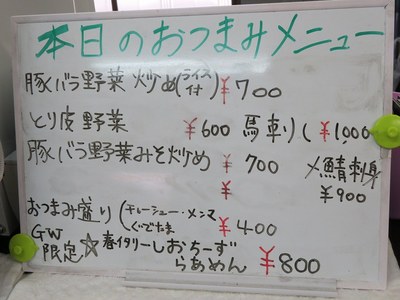 本日のおつまみメニュー
豚バラ野菜炒め(ライス付) ¥700
とり皮野菜 ¥600
馬刺し ¥1,000
豚バラ野菜みそ炒め ¥700
〆鯖刺身
¥900
¥
おつまみ盛り(チャーシュー・メンマ ¥400
GW
限定☆春イタリーしおちーず
らあめん ¥800